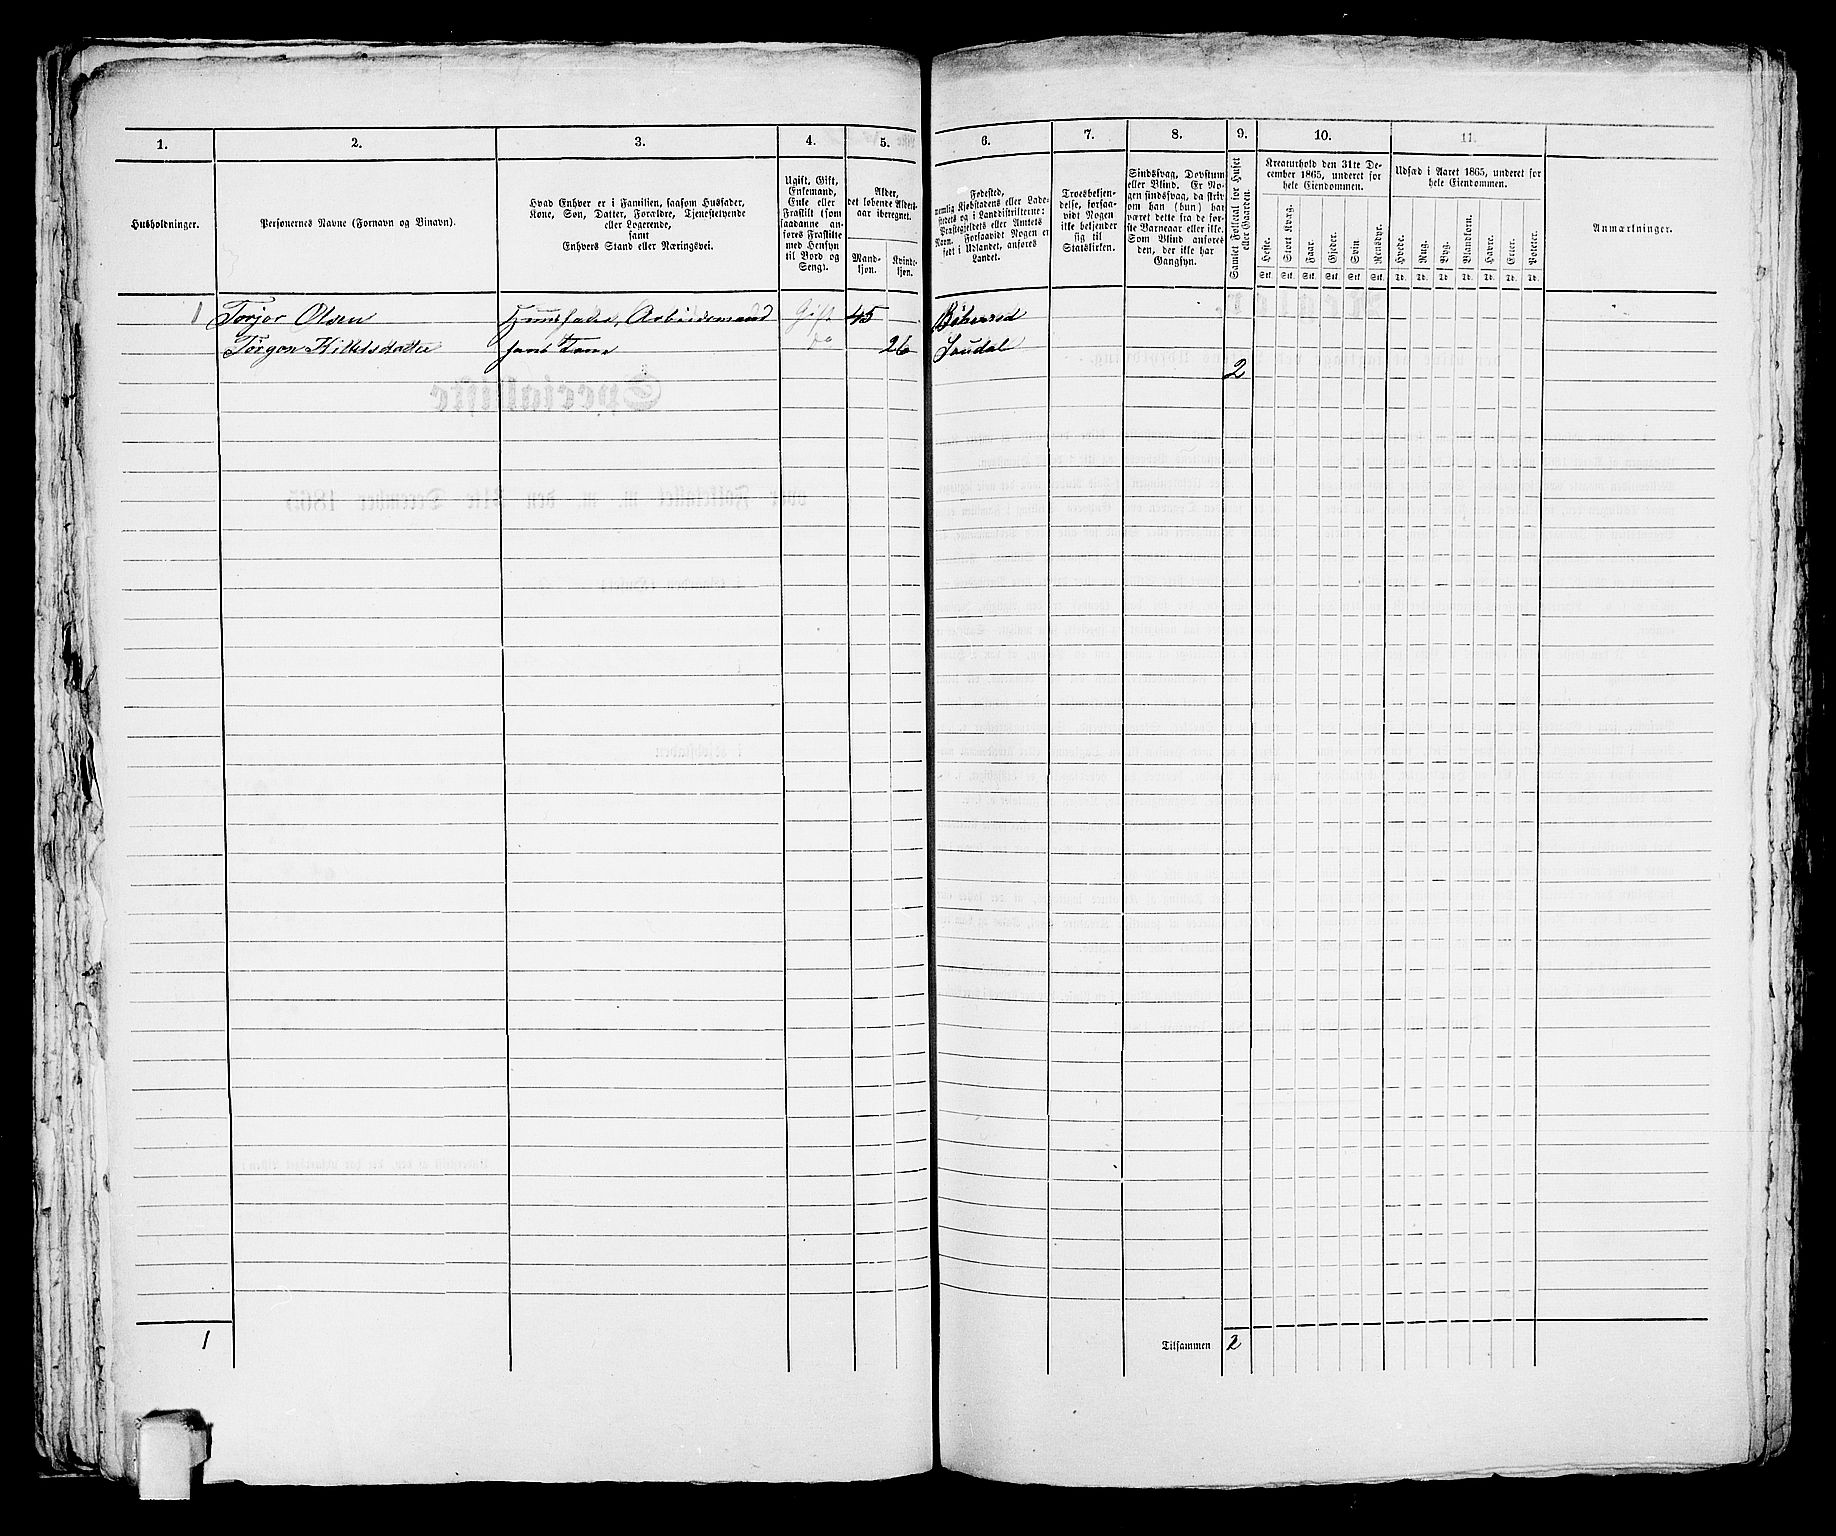 1. 2. 3. 4. 5. 6. 7. 8. 9. 10. 11.
Husholdninger.
Personernes Navne (Fornavn og Binavn).
Hvad Enhver er i Familien, saasom Husfader,
Kone, Søn, Datter, Forældre, Tjenestetyende
eller Logerende,
samt
Enhvers Stand eller Næringsvei.
Ugift, Gift,
Enkemand,
Enke eller
Fraskilt (som
saadanne an-
føres Fraskilte
med Hensyn
til Bord og
Seng).
Alder,
det løbende Alders-
aar iberegnet.
Mand-
kjøn.
Kvinde-
kjøn.
Fødested,
nemlig Kjøbstadens eller Lade-
stedets og i Landdistrikterne:
Præstegjeldets eller Amtets
Navn. Forsaavidt Nogen er
født i Udlandet, anføres
Landet.
Troesbekjen-
delse, forsaa-
vidt Nogen
ikke bekjender
sig til
Statskirken.
Sindssvag, Døvstum
eller Blind. Er No-
gen sindssvag, da skriv
om han (hun) har
været dette fra de før-
ste Barneaar eller ikke.
Som Blind anføres
den, der ikke har
Gangsyn.
Samlet Folketal for Huset
eller Gaarden.
Kreaturhold den 31te De-
cember 1865, underet for
hele Eiendommen.
Heste. Stort Kvæg. Faar. Gjeder. Svin. Rensdyr.
Stk. Stk. Stk. Stk. Stk. Stk.
Udsæd i Aaret 1865, underet for
hele Eiendommen.
Hvede. Rug. Byg. Blandkorn. Havre. Erter. Poteter.
Td. Td. Td. Td. Td. Td. Td.
Anmærkninger.
1 Torjer Olsen Huusfader, Arbeidsmand Gift 45
Törgon Kittelsdatter hans Kone do 26 Saudal
2
1 Tilsammen 2